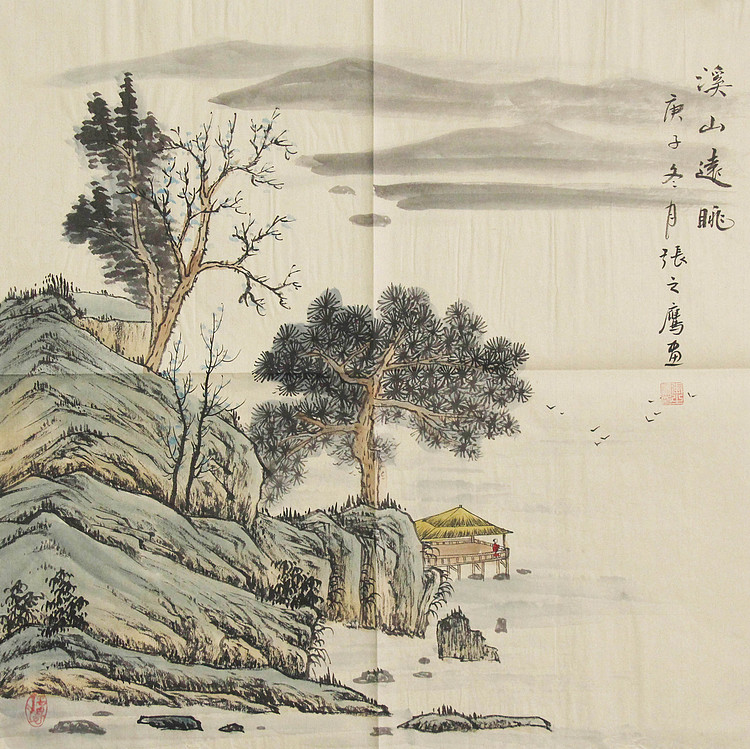 溪山遠眺
庚子冬月張之鷹画